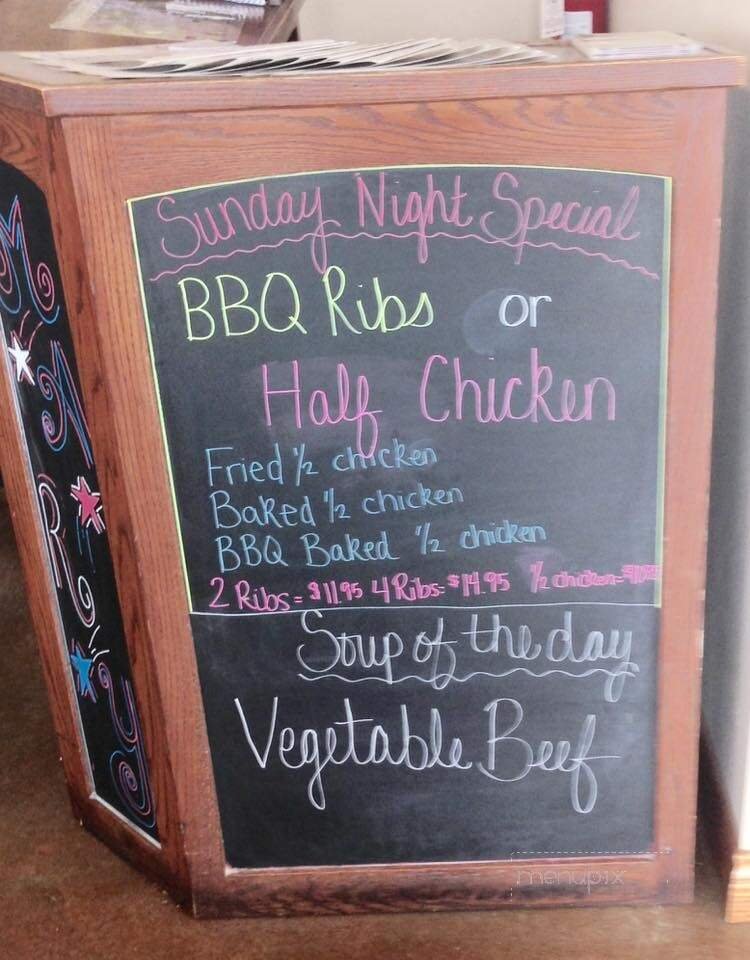 Sunday Night Special
BBQ Ribs or
Half Chicken
Fried 1/2 chicken
Baked 1/2 chicken
BBQ Baked 1/2 chicken
2 Ribs = $11.95 4 Ribs = $14.95 1/2 chicken =
Soup of the day
Vegetable Beef
menupix